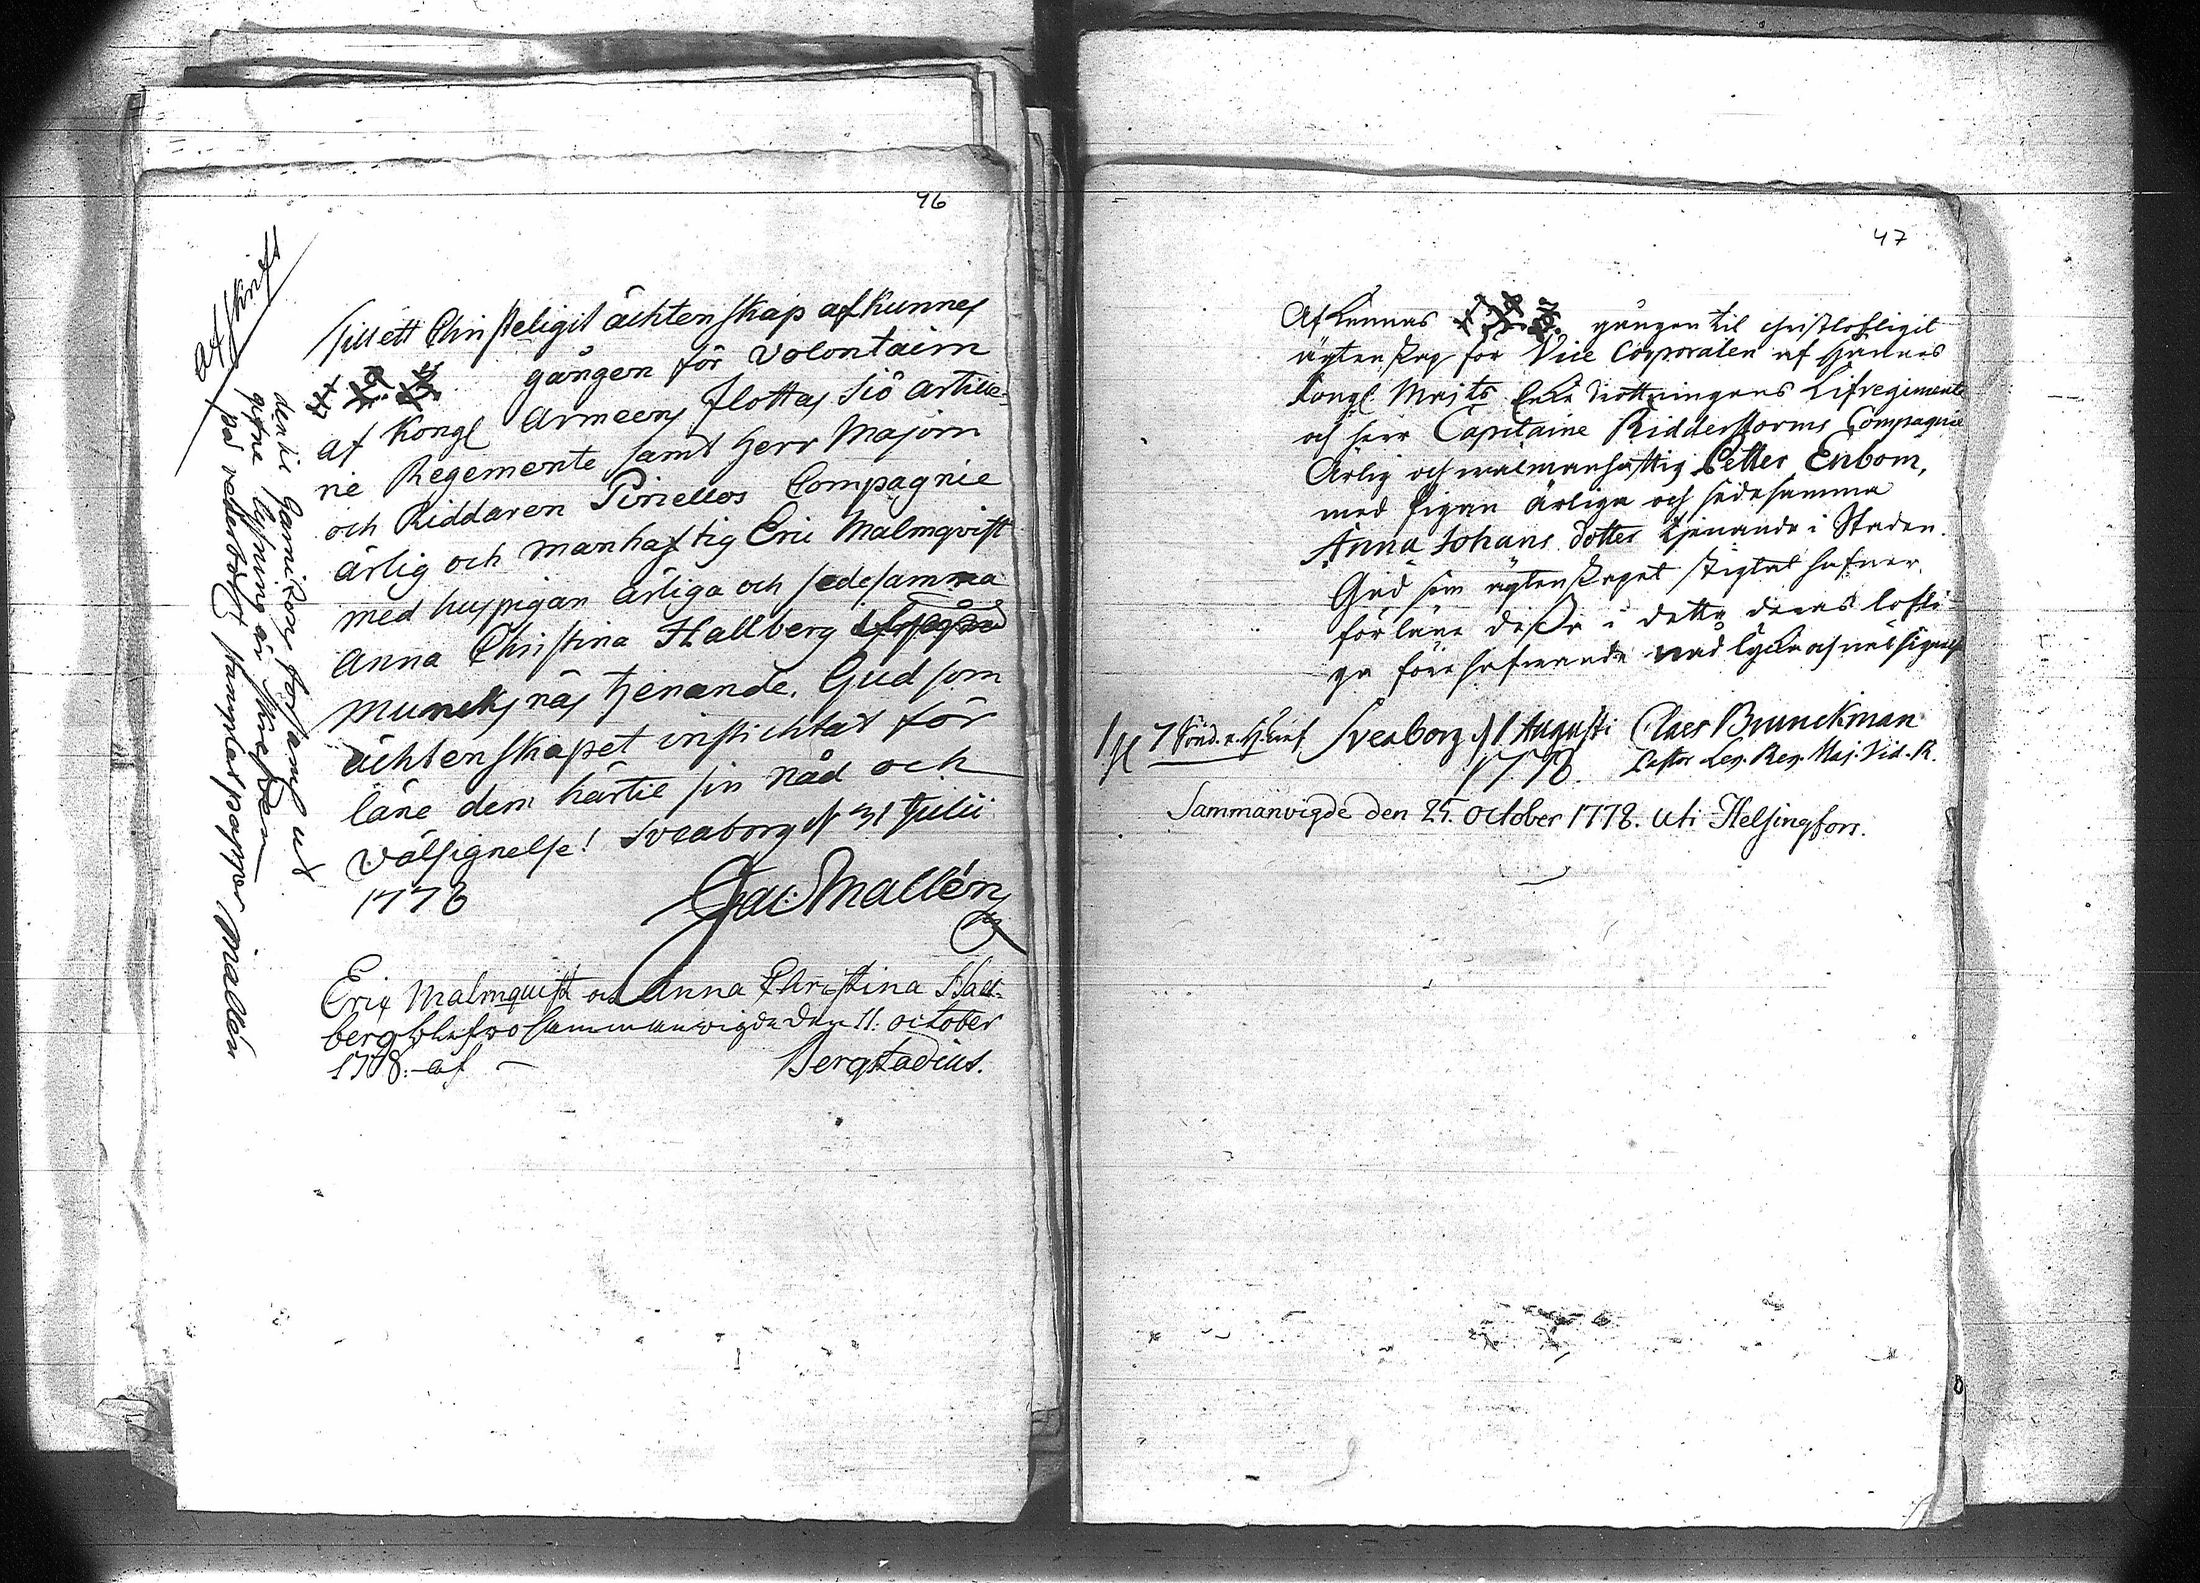 46
Afskrift
Till ett Christeligit ächtenskap afkunnes
gången för Volontairn
af Kongl Armeens flottas Siö Artille-
rie Regemente samt Herr Majorn
och Riddaren Piriellos Compagnie
ärlig och manhaftig Eric Malmqvist
med huspigan ärliga och sedesamma
Anna Christina Hallberg
Muncksnäs tjenande. Gud som
ächtenskapet instichtat för
läne dem härtil sin nåd och
Välsignelse! Sveaborg d 31 Julii
1778
Jac: Mallén
Eric Malmquist och Anna Christina Hall-
berg blefwo sammanwigde den 11. October
1778. af -
Bergstadius.
denne Garnisons församl ut
gifne lysning är skrefven
på vederbörligt stämplat papper Mallén
47
Afkunnas gången til christlofligit
ägtenskap för Vice Corporalen af Hännes
Kongl. Maijts Enke Drottningens Lifregimente
och herr Capitaine Ridderstorms Compagnie
Ärlig och wälmanhaftig Petter Enbom,
med pigan ärliga och sedesamma
Anna Johans dotter tjenande i Staden.
Gud som ägtenskapet stigtat hafver,
förläne desse i detta deras lofli-
ga förehafwande nåd lycka och wälsignelse
7 Sönd. Sveaborg d 1 Augusti Claes Brunckman
1778. Pastor Leg. Reg. Maj. Vid. R.
Sammanvigde den 25. October 1778. uti Helsingfors.